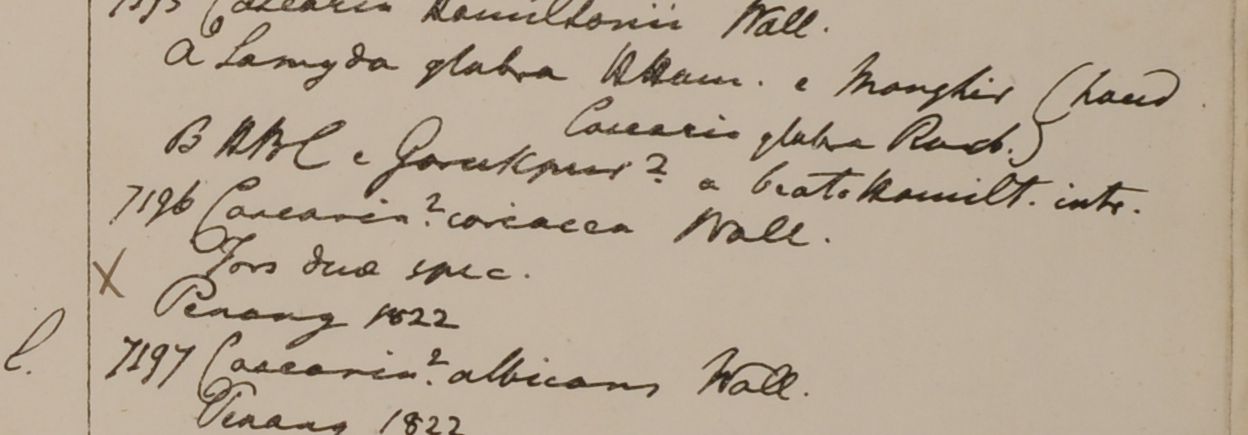 7195 Casearia Hamiltonii Wall.
A Samyda glabra HHam. e Monghir (haud
Casearia glabra Roxb.)
B HBC e Gorukpur? a beato Hamilt. intr.
7196 Casearia? coriacea Wall.
X Fors duæ spec.
Penang 1822
l. 7197 Casearia? albicans Wall.
Penang 1822